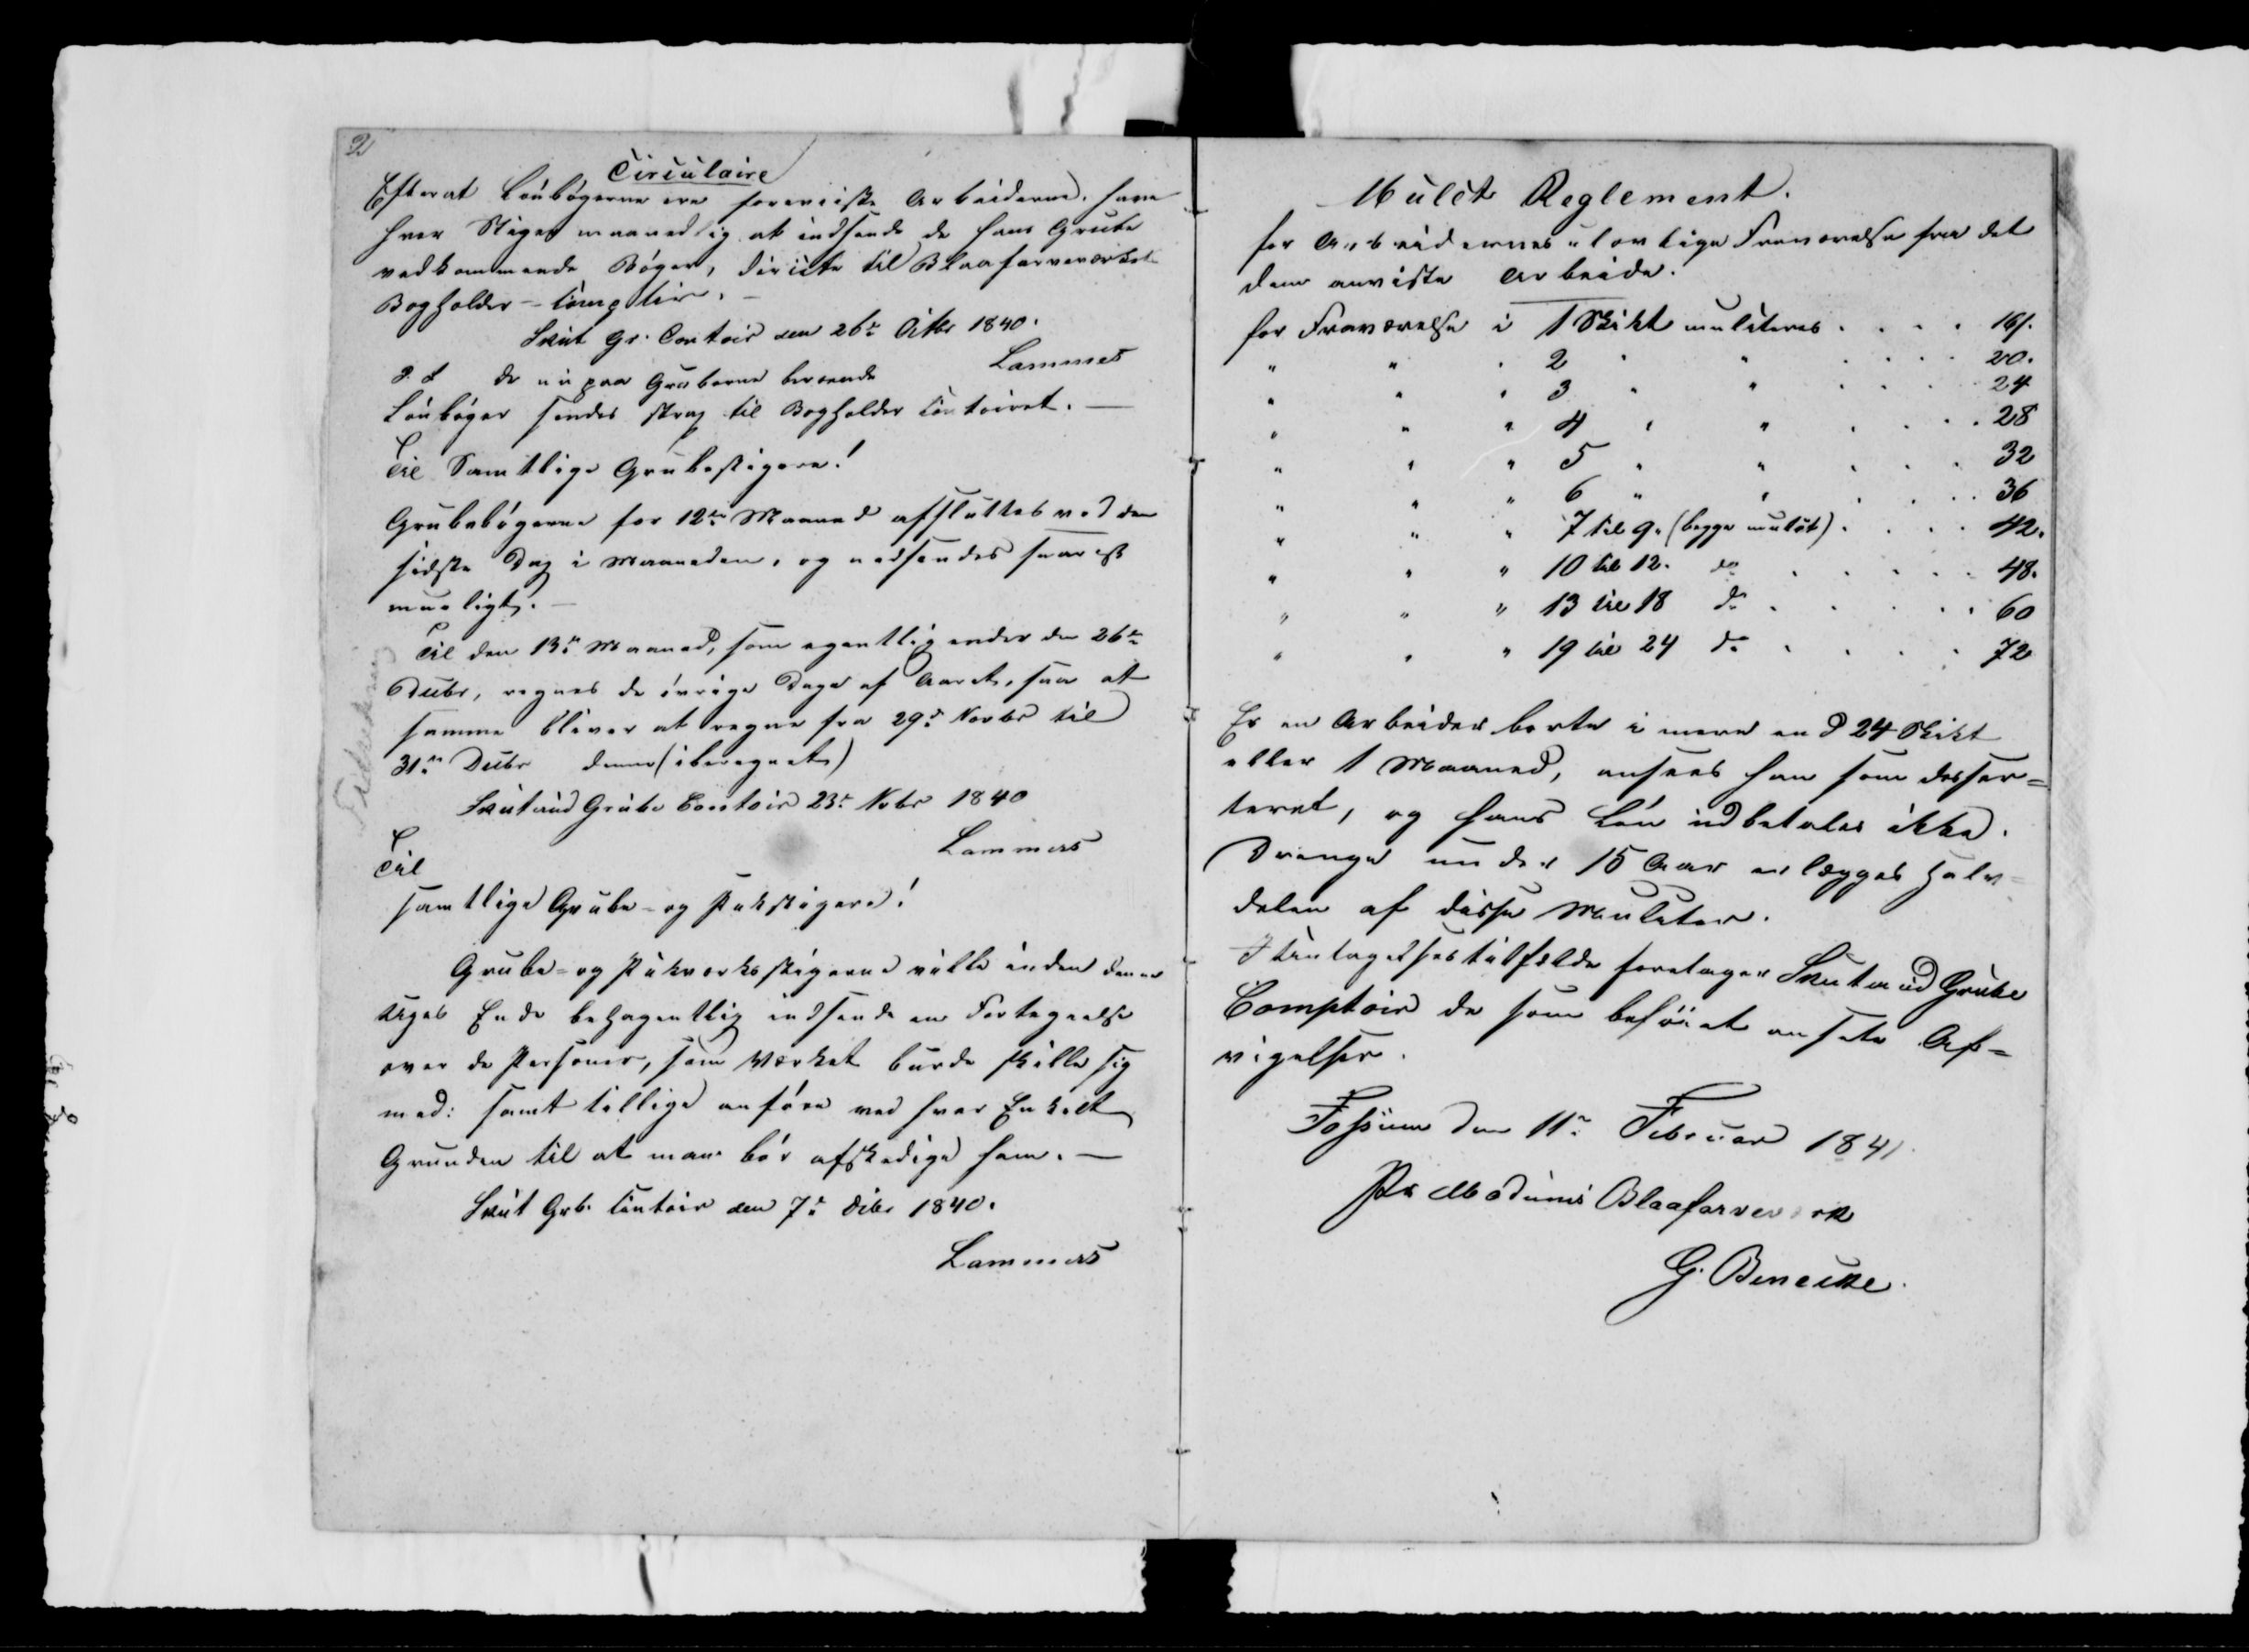 2
Circulaire
Efterat Lönbögerne ere foreviiste Arbeiderne, have
hver Stiger maanedlig at indsende de hans Grube
vedkommende Böger, directe til Blaafarveværkets
Bogholder-Comptoir. —
Skut Gr. Contoir den 26de Octbr 1840.
Lammers
P. S. de nu paa Gruberne beroende
Lönböger sendes strax til Bogholder Contoiret. —
Til Samtlige Grubestigere!
Grubebögerne for 12te Maaned afsluttes ved den
sidste Dag i Maaneden, og nedsendes snarest
mueligt. —
Til den 13de Maaned, som egentlig ender den 26de
Decbr, regnes de övrige Dage af Aaret, saa at
samme bliver at regne fra 29de Novbr til
31te Decbr denne (iberegnet)
Skuterud Grube Contoir 23de Nvbr 1840
Lammers
Til
samtlige Grube- og Pukstigere!
Grube- og Pukværksstigerne ville inden denne
Uges Ende behagentlig indsende en Fortegnelse
over de Personer, som Værket burde skille sig
med: samt tillige anföre ved hver Enkelt
Grunden til at man bör afskedige ham. —
Skut Grb. Contoir den 7de Decbr 1840.
Lammers
Mulct Reglement.
for Arbeidernes ulovlige Fraværelse fra det
dem anviste Arbeide.
for Fraværelse i 1 Skikt mulcteres . . . . 16ſ.
" " " 2 " " . . . . 20.
" " " 3 " " . . . . 24
" " " 4 " " . . . . 28
" " " 5 " " . . . . 32
" " " 6 " " . . . . 36
" " " 7 til 9. (begge inclus) . . . . 42.
" " " 10 til 12. do . . . . 48.
" " " 13 til 18 do . . . . 60
" " " 19 til 24 do . . . . 72
Er en Arbeider borte i mere end 24 Skikt
eller 1 Maaned, ansees han som desser=
teret, og hans Lön udbetales ikke.
Drenge under 15 Aar erlægges Halv=
delen af disse Mulcter.
I Undtagelsestilfælde foretager Skuterud Grube
Comptoir de som beföiet ansete Af=
vigelser.
Fossum den 11te Februar 1841.
Pr Modums Blaafarveværk
G. Benecke.